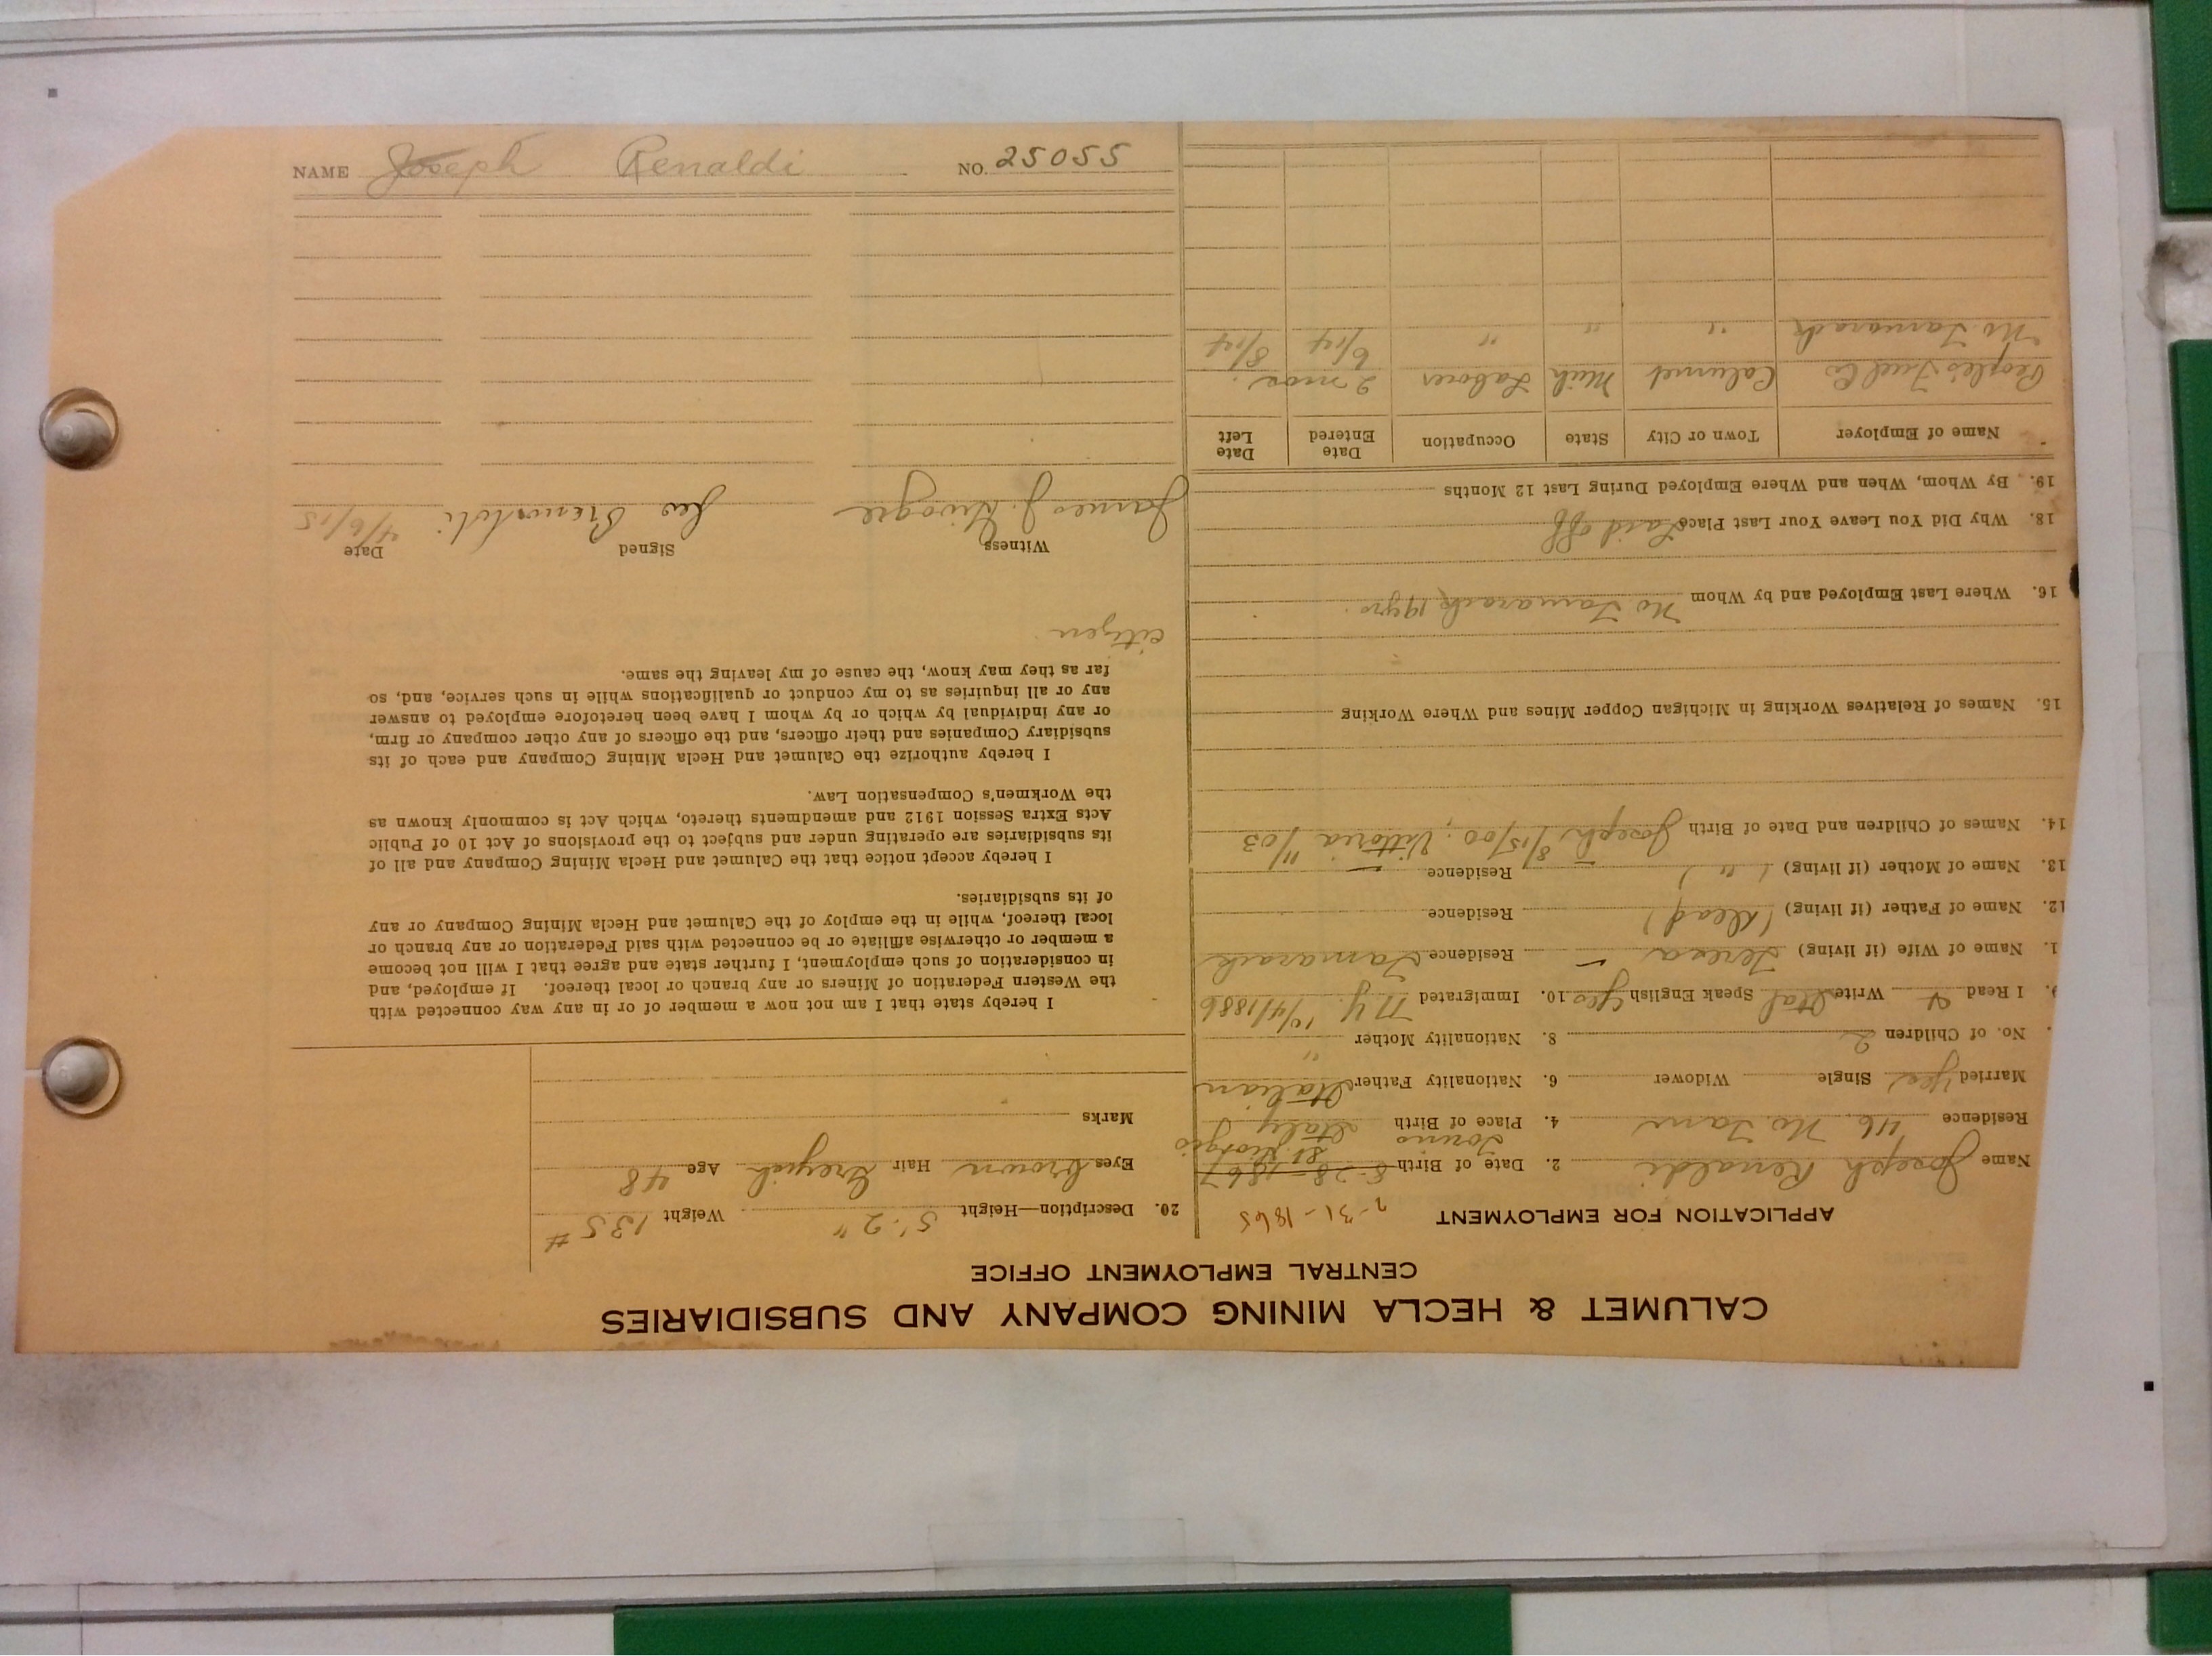 NAME Joseph Renaldi NO. 25055
CALUMET & HECLA MINING COMPANY AND SUBSIDIARIES
CENTRAL EMPLOYMENT OFFICE
APPLICATION FOR EMPLOYMENT
-31-1865
Name Joseph Renaldi 2. Date of Birth 8-28-1867
Residence 46 No. Tam 4. Place of Birth Italy
Married Yes Single Widower 6. Nationality Father Italian
No. of Children 2 8. Nationality Mother "
9. I Read Write Ital Speak English Yes 10. Immigrated N.Y. 1886
1. Name of Wife (if living) Teresa Residence Tamarack
12. Name of Father (if living) (dead) Residence
13. Name of Mother (if living) ( " ) Residence
14. Names of Children and Date of Birth Joseph 8/15/00; Vittoria 11/03
15. Names of Relatives Working in Michigan Copper Mines and Where Working
16. Where Last Employed and by Whom No Tamarack 19 yrs.
18. Why Did You Leave Your Last Place Laid off
19. By Whom, When and Where Employed During Last 12 Months
Name of Employer Town or City State Occupation Date Entered Date Left
Peoples Fuel Co Calumet Mich Laborer 2 mos.
No. Tamarack " " " 6/14 8/14
20. Description—Height 5'-2" Weight 135#
Eyes brown Hair Greyish Age 48
Marks
I hereby state that I am not now a member of or in any way connected with
the Western Federation of Miners or any branch or local thereof. If employed, and
in consideration of such employment, I further state and agree that I will not become
a member or otherwise affiliate or be connected with said Federation or any branch or
local thereof, while in the employ of the Calumet and Hecla Mining Company or any
of its subsidiaries.
I hereby accept notice that the Calumet and Hecla Mining Company and all of
its subsidiaries are operating under and subject to the provisions of Act 10 of Public
Acts Extra Session 1912 and amendments thereto, which Act is commonly known as
the Workmen's Compensation Law.
I hereby authorize the Calumet and Hecla Mining Company and each of its
subsidiary Companies and their officers, and the officers of any other company or firm,
or any individual by which or by whom I have been heretofore employed to answer
any or all inquiries as to my conduct or qualifications while in such service, and, so
far as they may know, the cause of my leaving the same.
citizen
Witness Signed Date
James J. 4/6/15